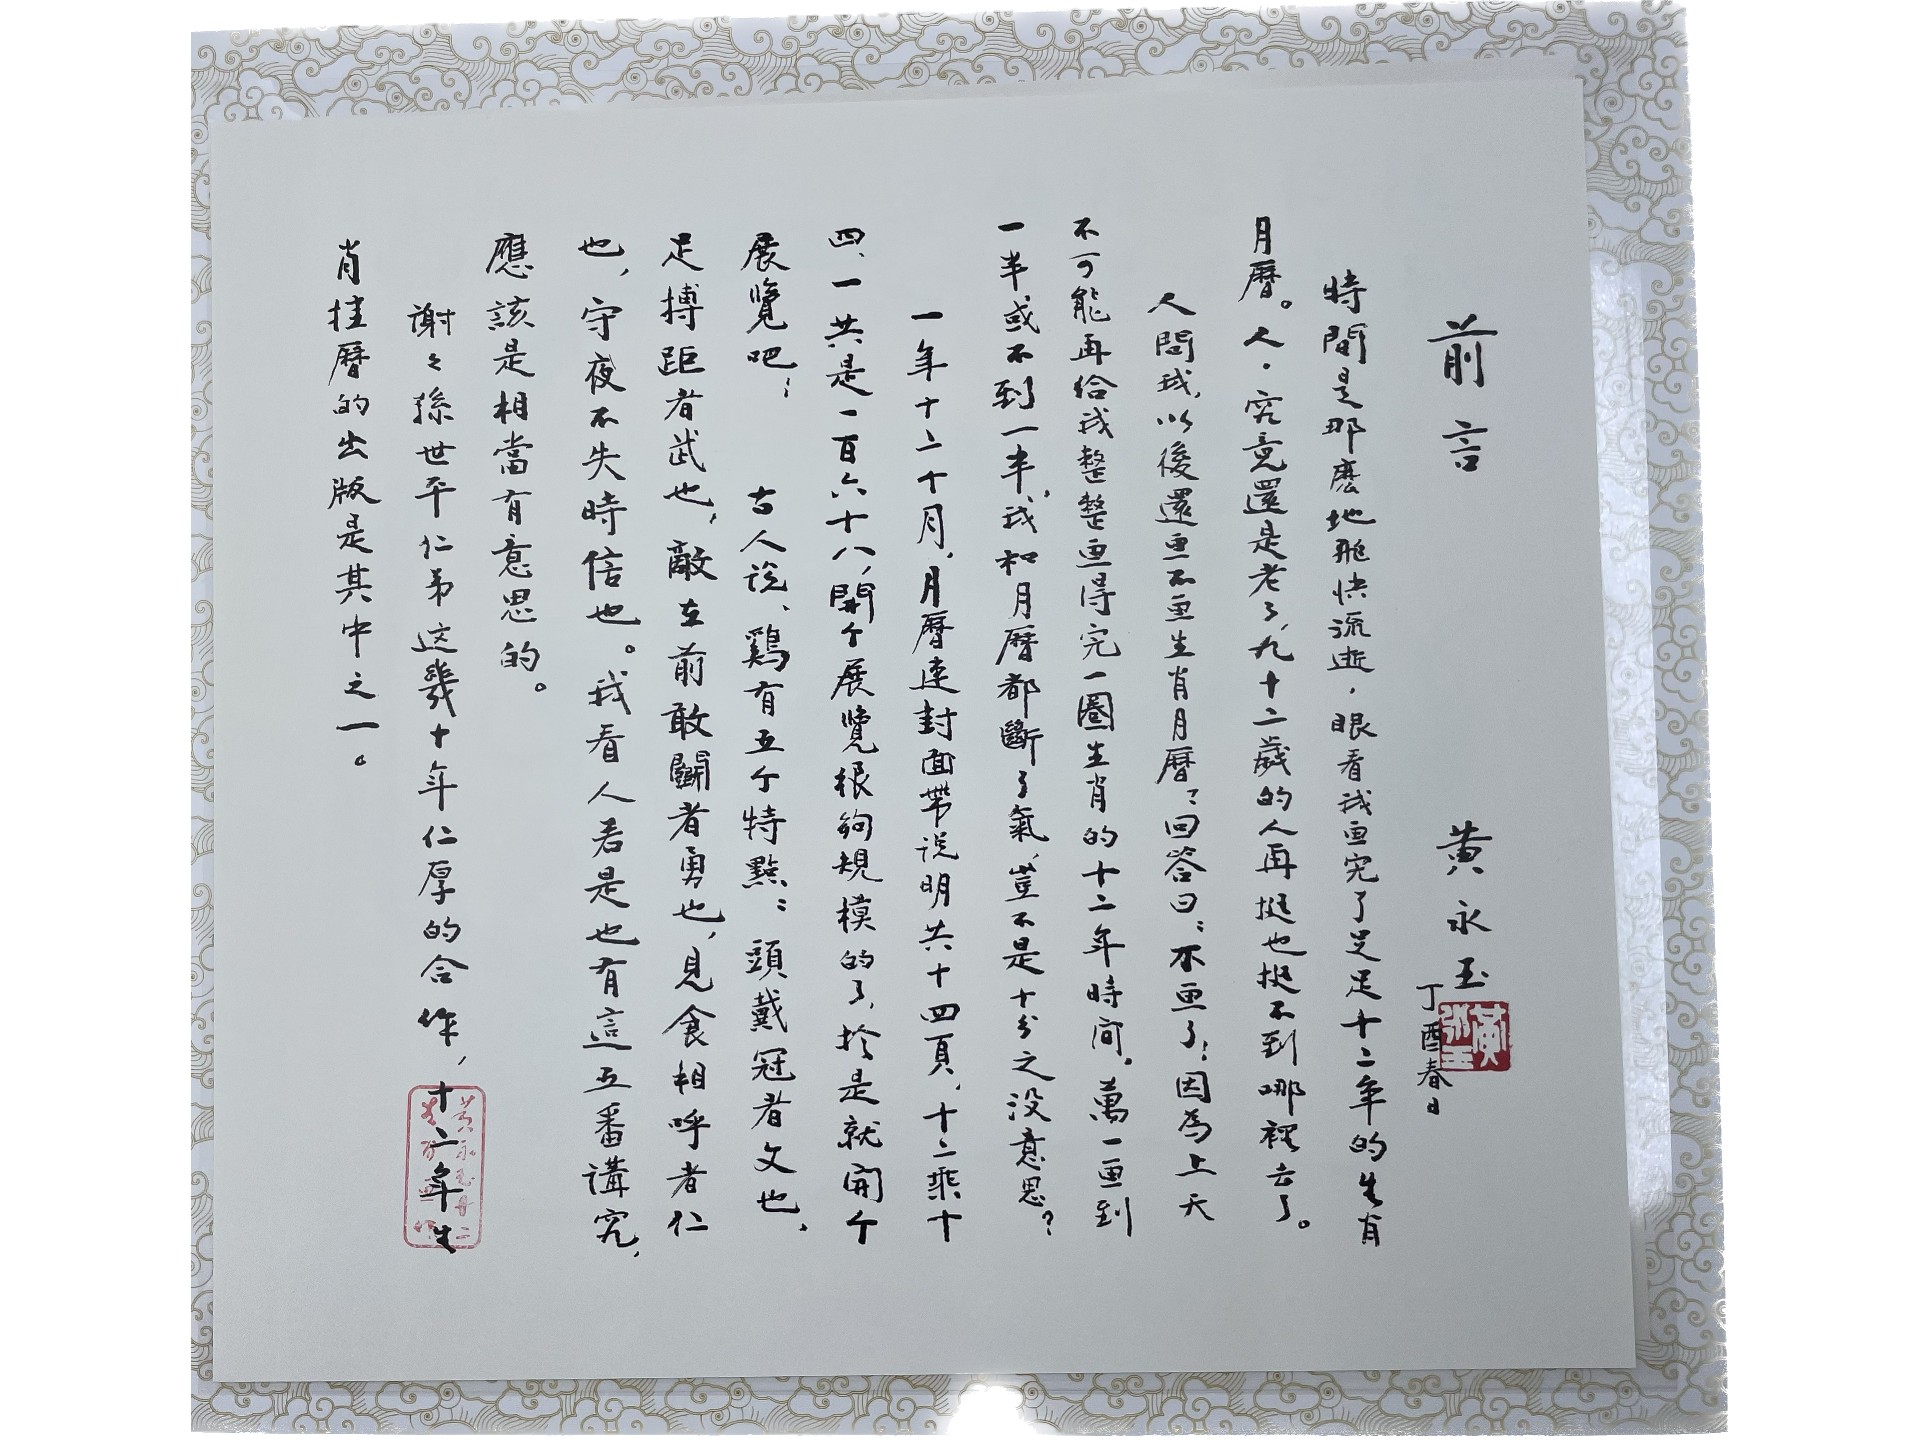 前言
黄永玉
丁酉春日
時間是那麽地飛快流逝，眼看我画完了足足十二年的生肖
月曆。人，究竟還是老了，九十二歲的人再挺也挺不到哪裡去了。
人問我，以後還画不画生肖月曆？回答曰：不画了！因為上天
不可能再给我整整画得完一圈生肖的十二年時间。萬一画到
一半或不到一半，我和月曆都斷了氣，豈不是十分之没意思？
一年十二个月，月曆連封面带说明共十四頁，十二乘十
四，一共是一百六十八，開个展覽很夠規模的了，於是就開个
展覽吧！ 古人说，鷄有五个特點：頭戴冠者文也，
足搏距者武也，敵在前敢鬭者勇也，見食相呼者仁
也，守夜不失時信也。我看人若是也有這五番講究，
應該是相當有意思的。
謝々孫世平仁弟这幾十年仁厚的合作，十二年生
肖挂曆的出版是其中之一。
黄永玉